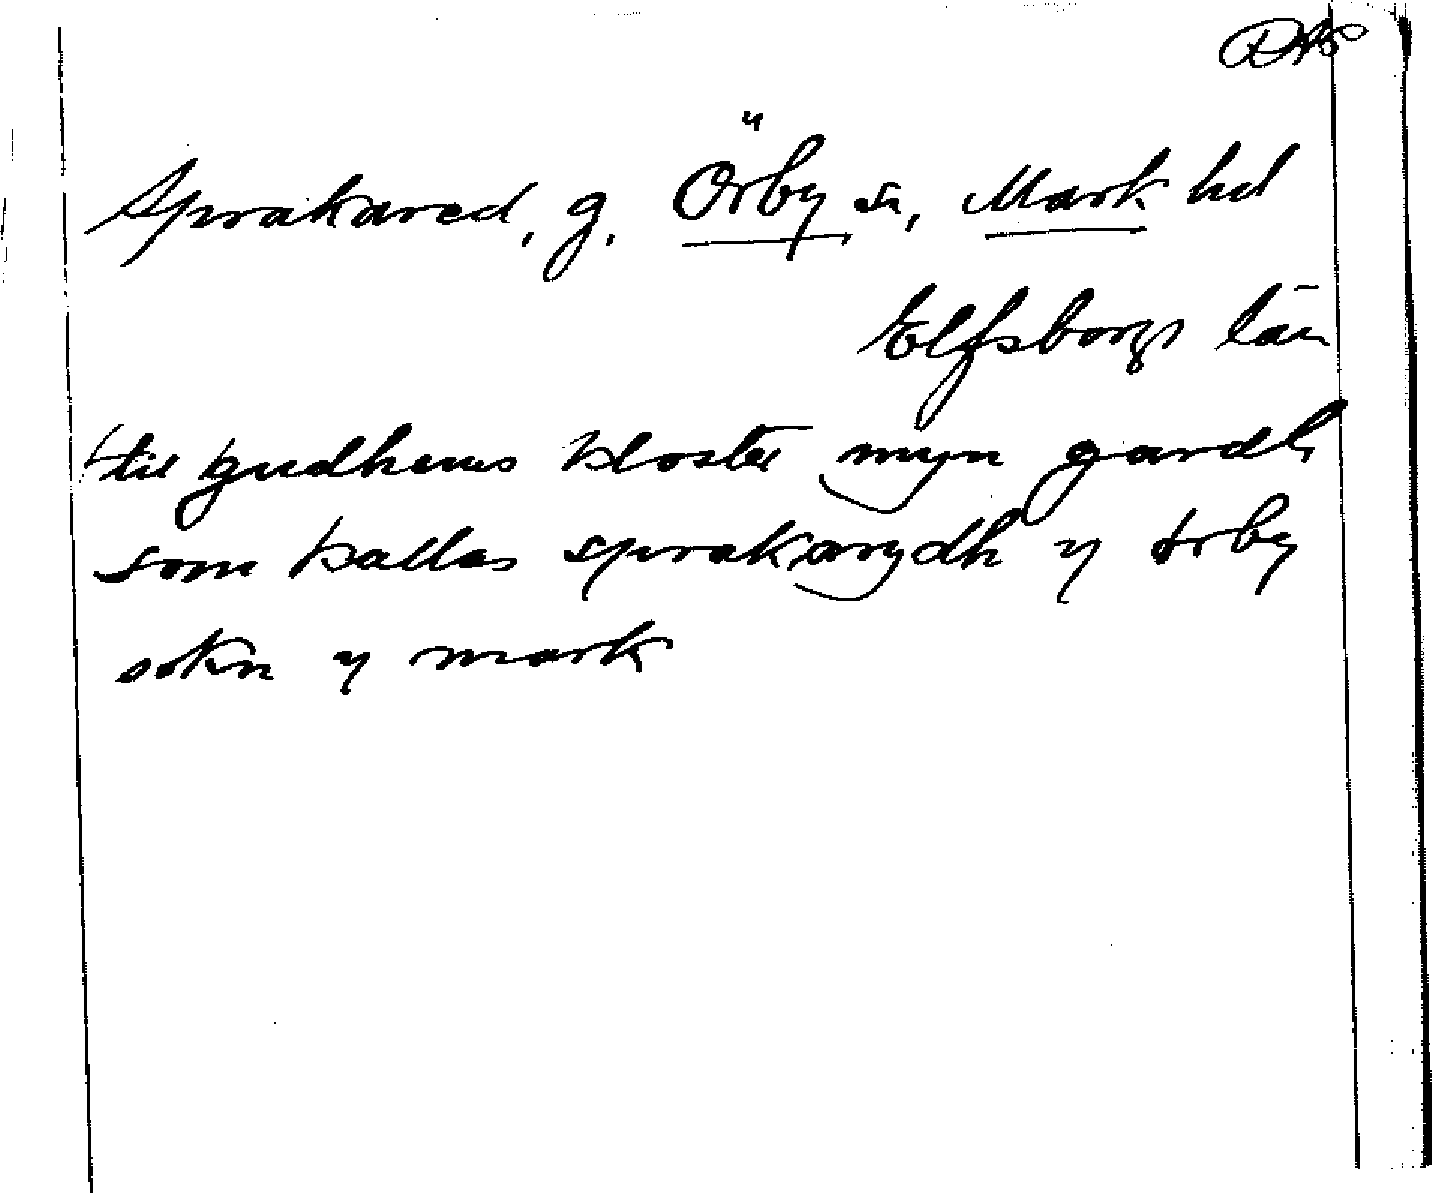 Sprakared, g. Örby sn, Mark hd
Elfsborgs län
til gudhems kloster myn gardh
som kallas sprakarydh y örby
sokn y mark